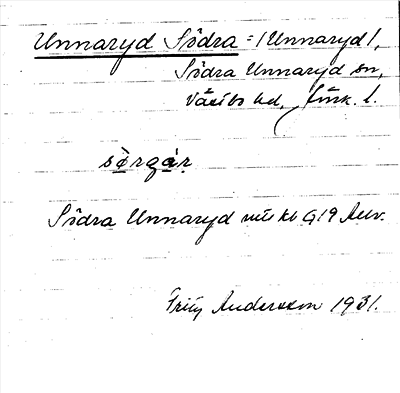 Unnaryd Södra = (Unnaryd),
Södra Unnaryd sn,
Västbo hd, Jönk. l.
sörgár
Södra Unnaryd 19
Fritz Andersson 1931.